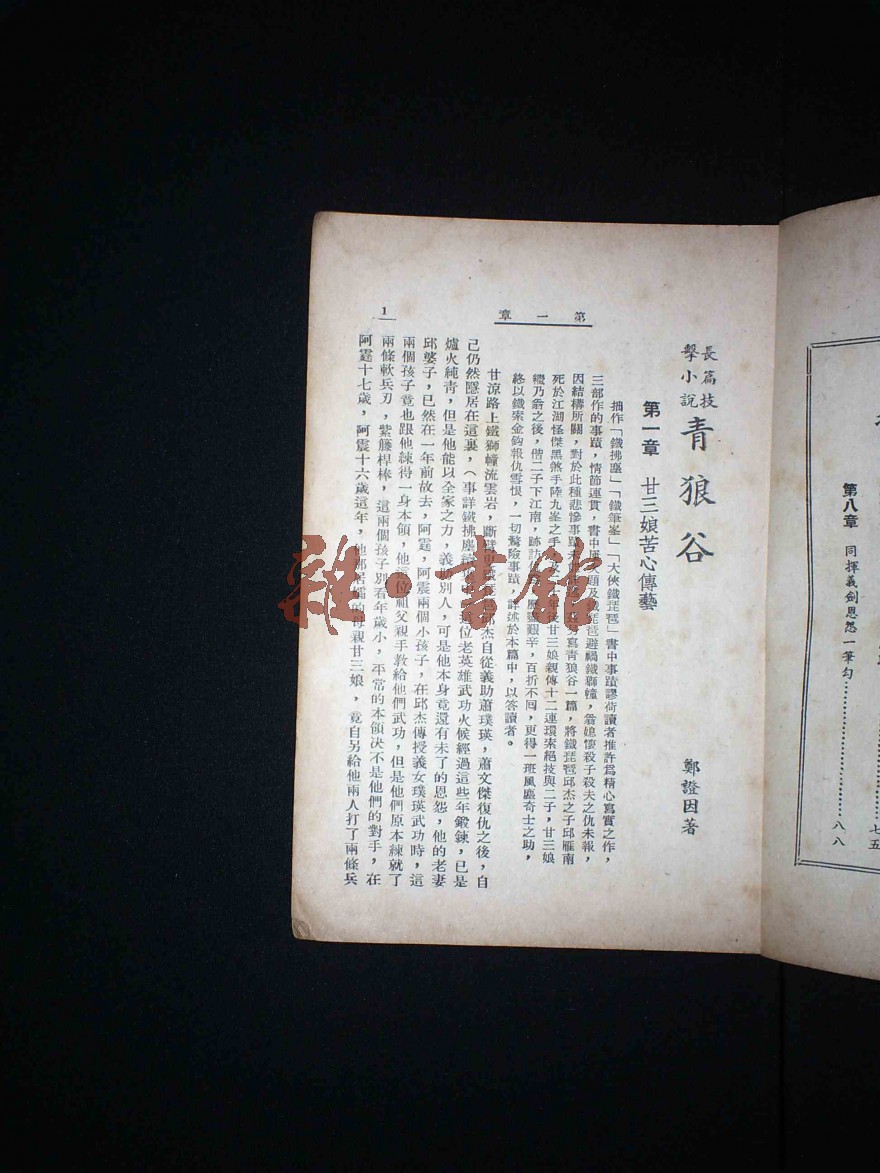 第八章 同揮義劍恩怨一筆勾……………八八
七五
長篇技
擊小說
青狼谷
鄭證因著
第一章 甘三娘苦心傳藝
拙作「鐵拂塵」「鐵筆峯」「大俠鐵琵琶」書中事蹟謬荷讀者推許爲精心寫實之作，
三部作的事蹟，情節連貫，書中屢次題及鐵琵琶避禍鐵獅幢，翁媳懷殺子殺夫之仇未報，
因結構所關，對於此種悲慘事蹟未寫青狼谷一篇，將鐵琵琶邱杰之子邱雁南
死於江湖怪傑黑煞手陸九峯之手，後甘三娘親傳十二連環索絕技與二子，甘三娘
稟乃翁之後，偕二子下江南，跡訪歷盡艱辛，百折不囘，更得一班風塵奇士之助，
終以鐵索金鈎報仇雪恨，一切驚險事蹟，詳述於本篇中，以答讀者。
甘涼路上鐵獅幢流雲岩，斷邱杰自從義助蕭璞瑛，蕭文傑復仇之後，自
己仍然隱居在這裏，（事詳鐵拂塵這位老英雄武功火候經過這些年鍛鍊，已是
爐火純青，但是他能以全家之力，義助別人，可是他本身竟還有未了的恩怨，他的老妻
邱婆子，已然在一年前故去，阿霆，阿震兩個小孩子，在邱杰傳授義女璞瑛武功時，這
兩個孩子竟也跟他練得一身本領，他這位祖父親手教給他們武功，但是他們原本練就了
兩條軟兵刃，紫籐桿棒，這兩個孩子別看年歲小，平常的本領決不是他們的對手，在
阿霆十七歲，阿震十六歲這年，他那苦孀的母親甘三娘，竟自另給他兩人打了兩條兵
第一章
1
雜·書館